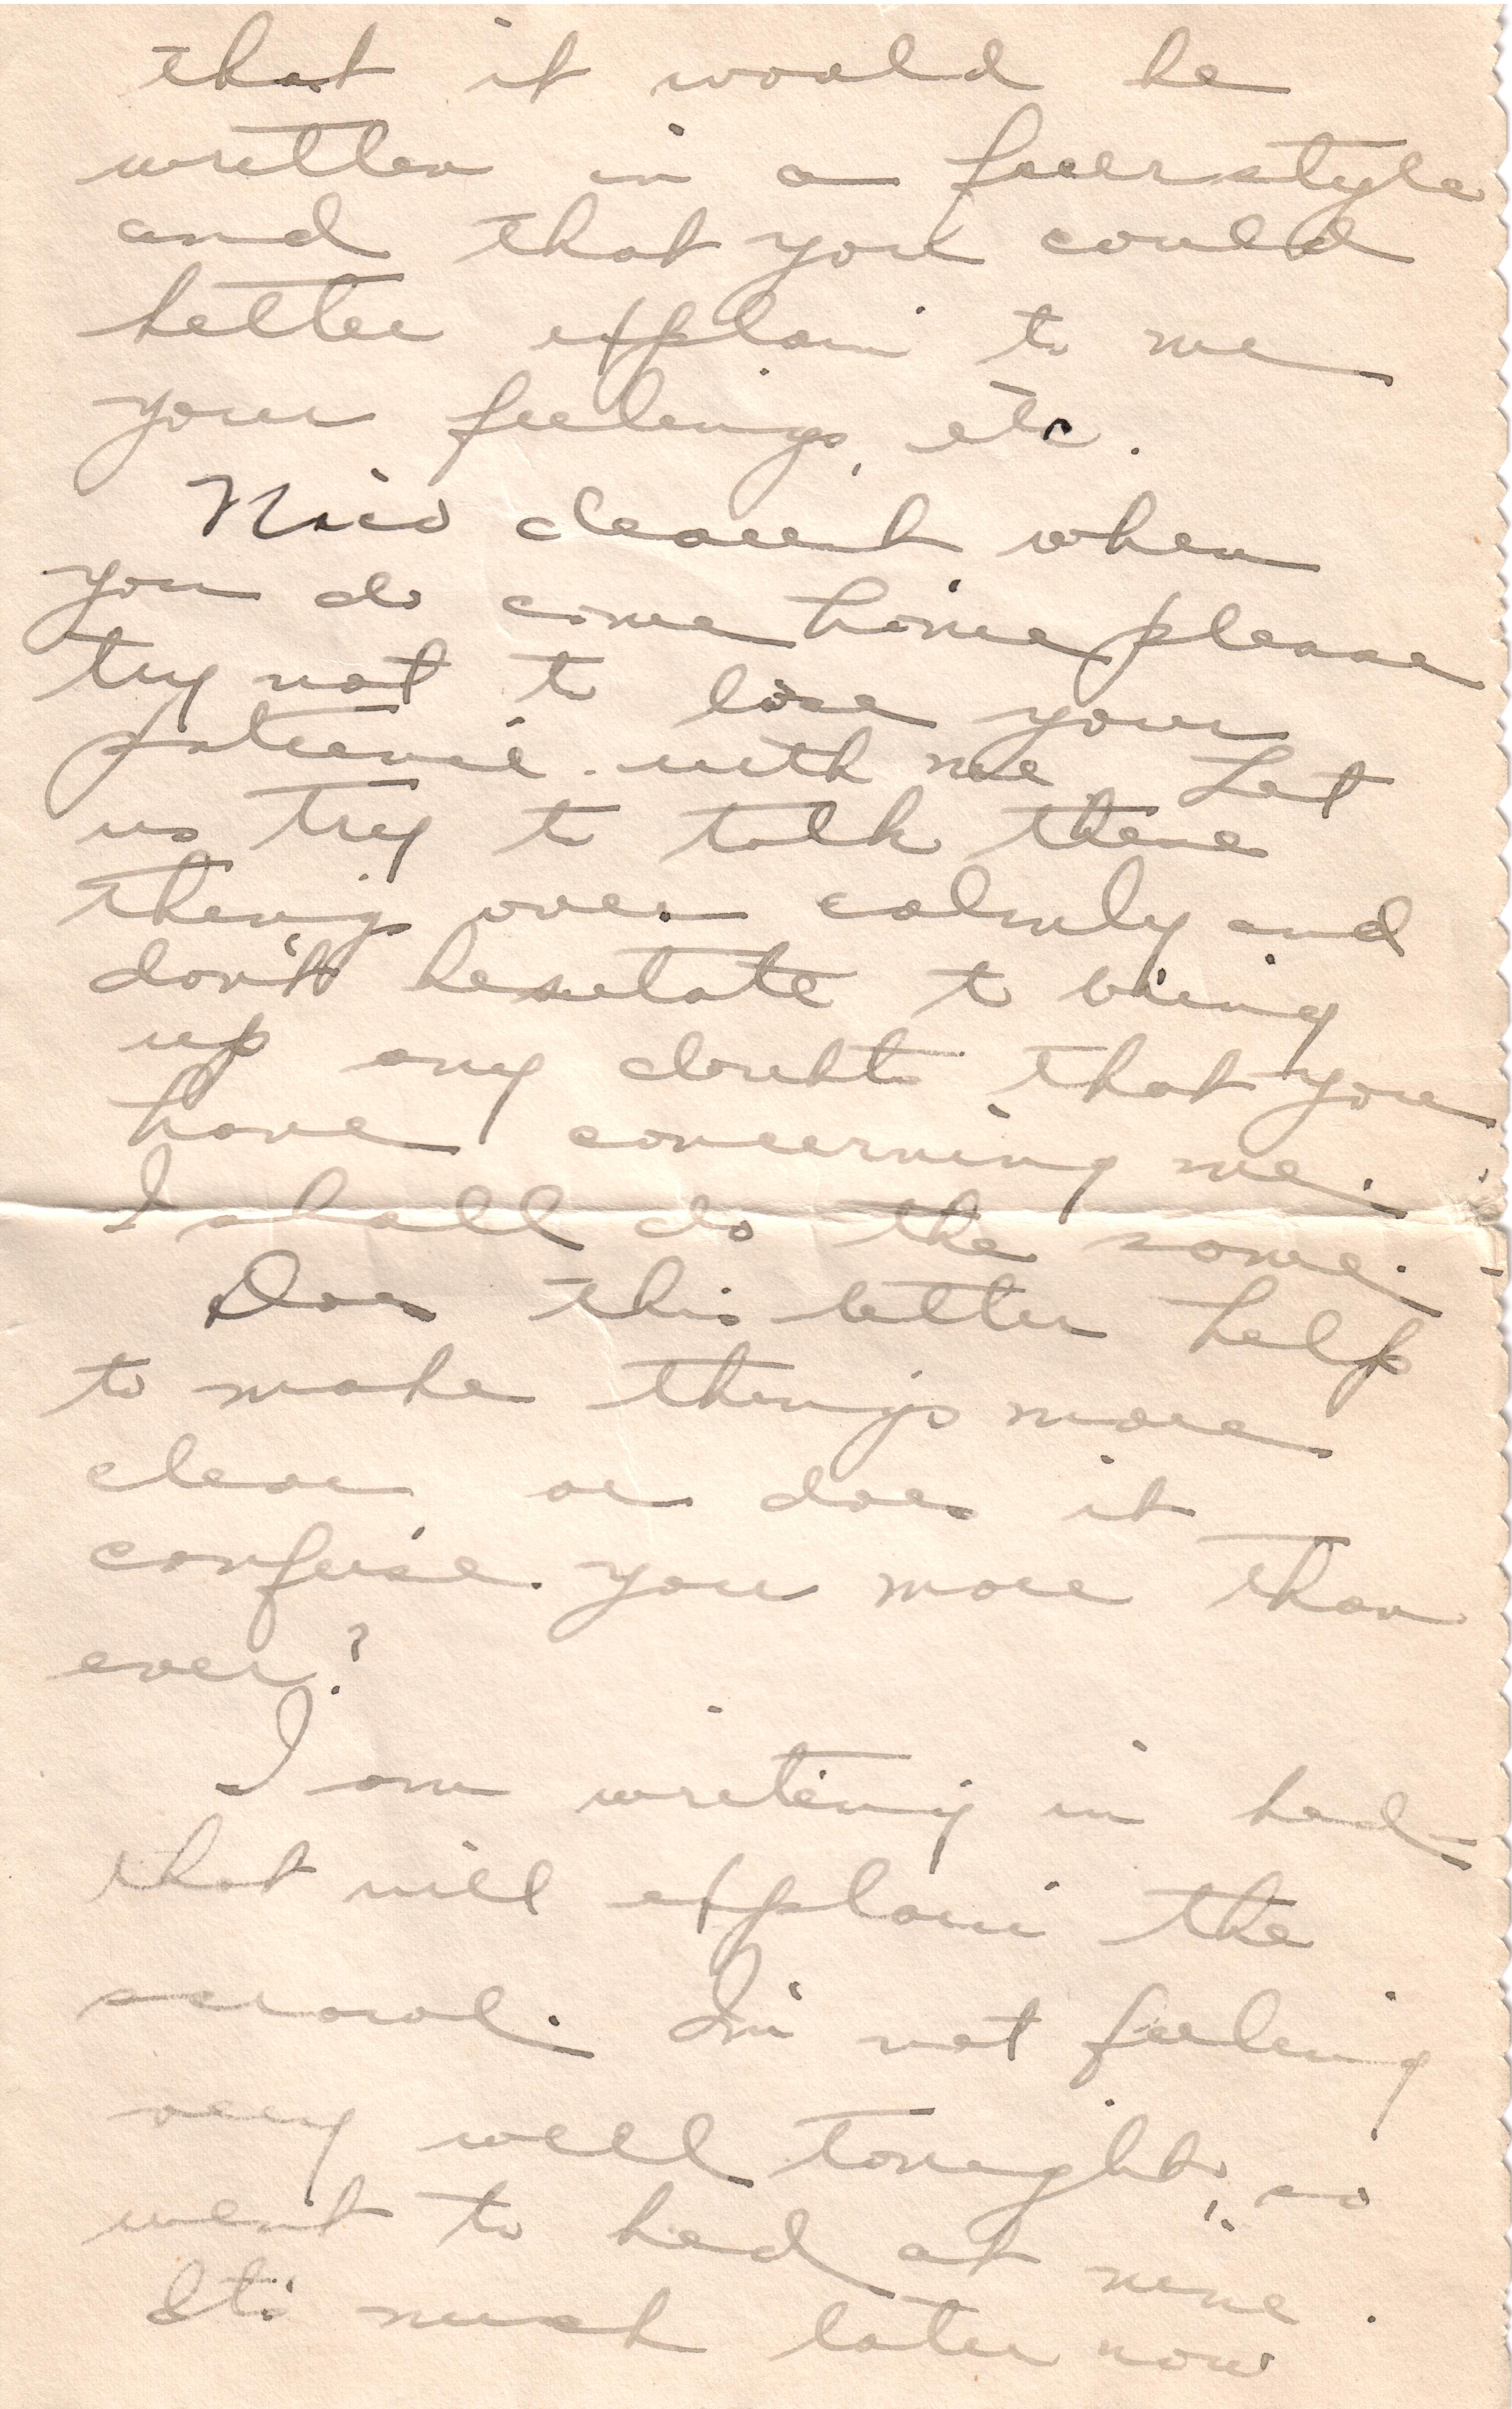 that it would be
written in a freer style
and that you could
better explain to me
your feelings, etc.
dearest when
you do come home please
try not to lose your
patience with me. Let
us try to talk these
things over calmly and
don't hesitate to bring
up any doubts that you
have concerning me.
I shall do the same.
Does this letter help
to make things more
clear or does it
confuse you more than
ever?
I am writing in bed-
that will explain the
scrawl. I'm not feeling
very well tonight, so
went to bed at nine.
It's much later now